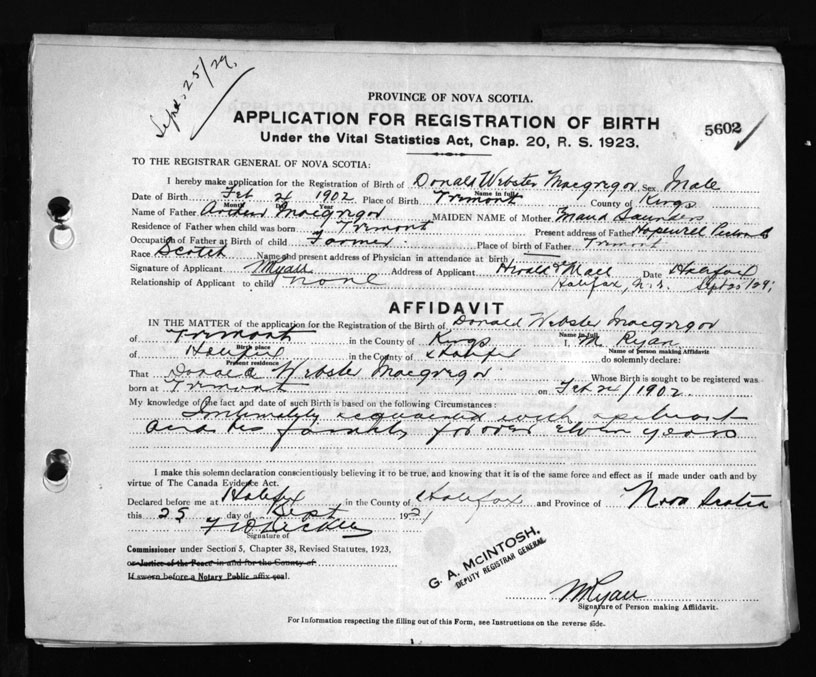 Sept. 25/29.
PROVINCE OF NOVA SCOTIA.
APPLICATION FOR REGISTRATION OF BIRTH
5602
Under the Vital Statistics Act, Chap. 20, R. S. 1923.
TO THE REGISTRAR GENERAL OF NOVA SCOTIA:
I hereby make application for the Registration of Birth of Donald Webster Macgregor Sex Male
Name in full
Date of Birth Feb 2 1902 Place of Birth Tremont County of Kings
Month Day Year
Name of Father Macgregor MAIDEN NAME of Mother Maud Saunders
Residence of Father when child was born Tremont Present address of Father Hopewell
Occupation of Father at Birth of child Farmer. Place of birth of Father Tremont
Race Scotch Name and present address of Physician in attendance at birth —
Signature of Applicant MRyan Address of Applicant Herald & Mail Date Halifax
Relationship of Applicant to child none Halifax, N.S. Sept 25/29
AFFIDAVIT
IN THE MATTER of the application for the Registration of the Birth of Donald Webster Macgregor
Name in full
of Tremont in the County of Kings I, M Ryan
Birth place Name of person making Affidavit
of Halifax in the County of Halifax do solemnly declare:
Present residence
That Donald Webster Macgregor Whose Birth is sought to be registered was
born at Tremont on Feb 2 / 1902
My knowledge of the fact and date of such Birth is based on the following Circumstances:
Intimately acquainted with applicant
and his family for over eleven years
I make this solemn declaration conscientiously believing it to be true, and knowing that it is of the same force and effect as if made under oath and by
virtue of The Canada Evidence Act.
Declared before me at Halifax in the County of Halifax and Province of Nova Scotia
this 25 day of Sept 192
Signature of
Commissioner under Section 5, Chapter 38, Revised Statutes, 1923,
or Justice of the Peace in and for the County of
If sworn before a Notary Public affix seal.
G. A. McINTOSH,
DEPUTY REGISTRAR GENERAL
MRyan
Signature of Person making Affidavit.
For Information respecting the filling out of this Form, see Instructions on the reverse side.